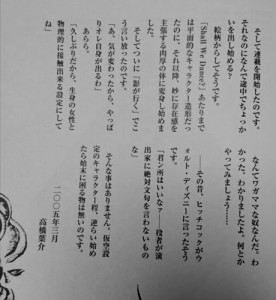 そして連載を開始したのです。
それなのになんで途中でちょっか
いを出し始める？
絵柄からしてそうです。
「Shall We Dance?」あたりまで
は平面的なキャラクター造形だっ
たのに、それ以降、妙に存在感を
主張する肉厚の体に変身し始めま
した。
そしてついに「影が行く」でこ
う言い放ったのです。
「あ、気が変わったから、やっぱ
りオレ自身が出るわ」
あらら。
「久しぶりだから、生身の女性と
物理的に接触出来る設定にして
な」
なんてワガママな奴なんだ。わ
かった、わかりましたよ。何とか
やってみましょう……
その昔、ヒッチコックがウ
ォルト・ディズニーに言ったそう
です。
「君ン所はいいなァ…役者が演
出家に絶対文句を言わないもの
な」
そんな事はありません。仮空設
定のキャラクター程、逆らい始め
たら始末に困る物は無いのです。
二〇〇五年三月
高橋葉介